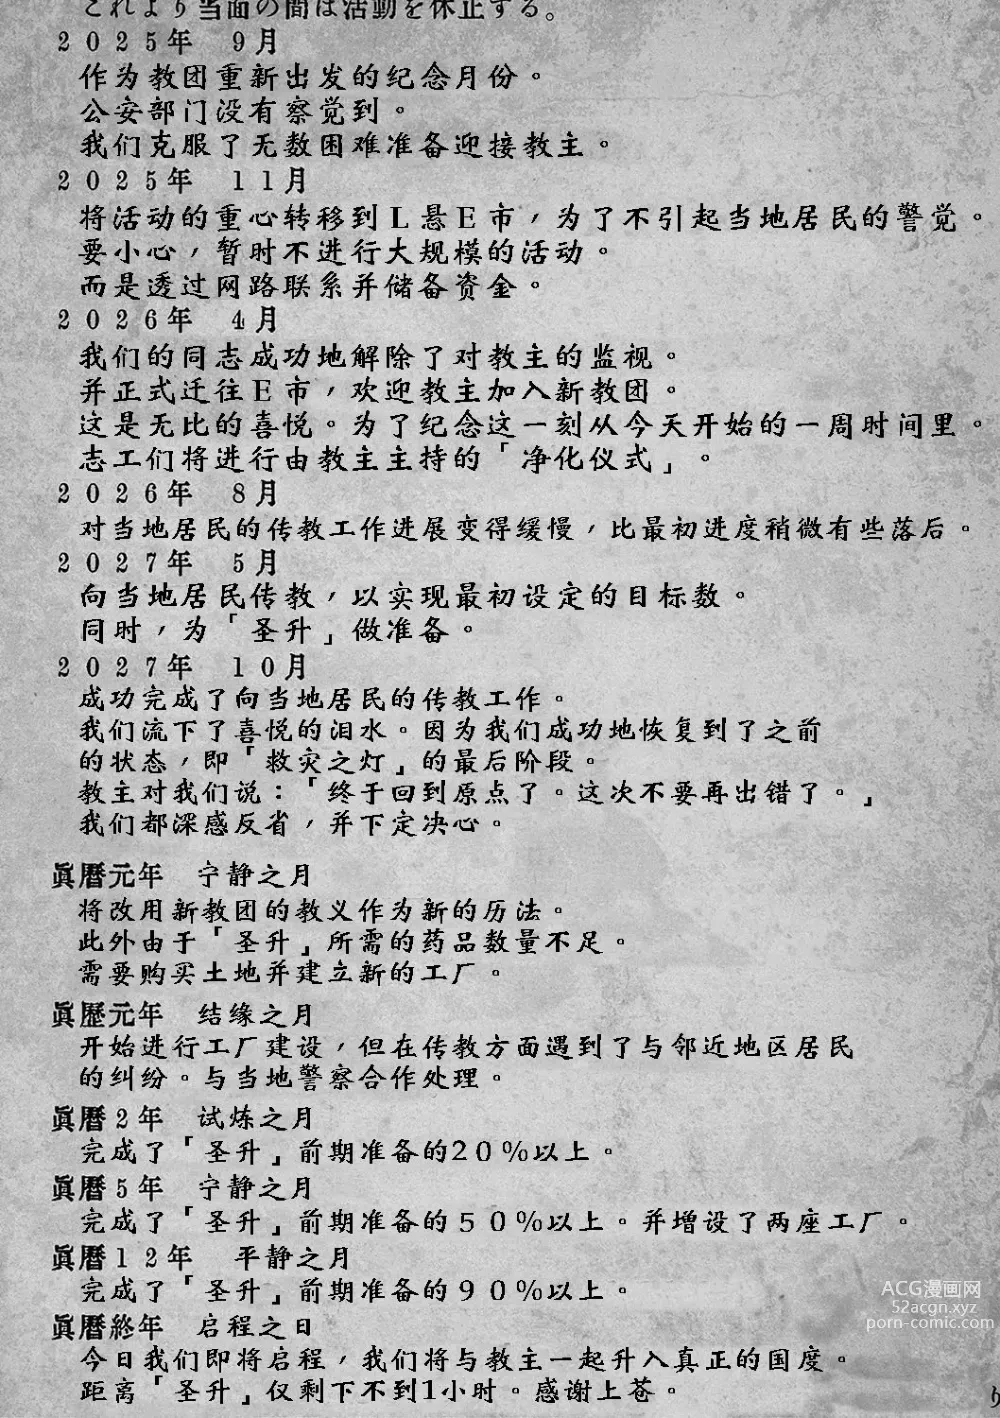 これより当面の間は活動を休止する。
２０２５年　９月
作为教团重新出发的纪念月份。
公安部门没有察觉到。
我们克服了无数困难准备迎接教主。
２０２５年　１１月
将活动的重心转移到Ｌ悬Ｅ市，为了不引起当地居民的警觉。
要小心，暂时不进行大规模的活动。
而是透过网路联系并储备资金。
２０２６年　４月
我们的同志成功地解除了对教主的监视。
并正式迁往Ｅ市，欢迎教主加入新教团。
这是无比的喜悦。为了纪念这一刻从今天开始的一周时间里。
志工们将进行由教主主持的「净化仪式」。
２０２６年　８月
对当地居民的传教工作进展变得缓慢，比最初进度稍微有些落后。
２０２７年　５月
向当地居民传教，以实现最初设定的目标数。
同时，为「圣升」做准备。
２０２７年　１０月
成功完成了向当地居民的传教工作。
我们流下了喜悦的泪水。因为我们成功地恢复到了之前
的状态，即「救灾之灯」的最后阶段。
教主对我们说：「终于回到原点了。这次不要再出错了。」
我们都深感反省，并下定决心。
眞暦元年　宁静之月
将改用新教团的教义作为新的历法。
此外由于「圣升」所需的药品数量不足。
需要购买土地并建立新的工厂。
眞歴元年　结缘之月
开始进行工厂建设，但在传教方面遇到了与邻近地区居民
的纠纷。与当地警察合作处理。
眞暦２年　试炼之月
完成了「圣升」前期准备的２０％以上。
眞暦５年　宁静之月
完成了「圣升」前期准备的５０％以上。并增设了两座工厂。
眞暦１２年　平静之月
完成了「圣升」前期准备的９０％以上。
眞暦終年　启程之日
今日我们即将启程，我们将与教主一起升入真正的国度。
距离「圣升」仅剩下不到1小时。感谢上苍。
ACG漫画网
52acgn.xyz
porn-comic.com